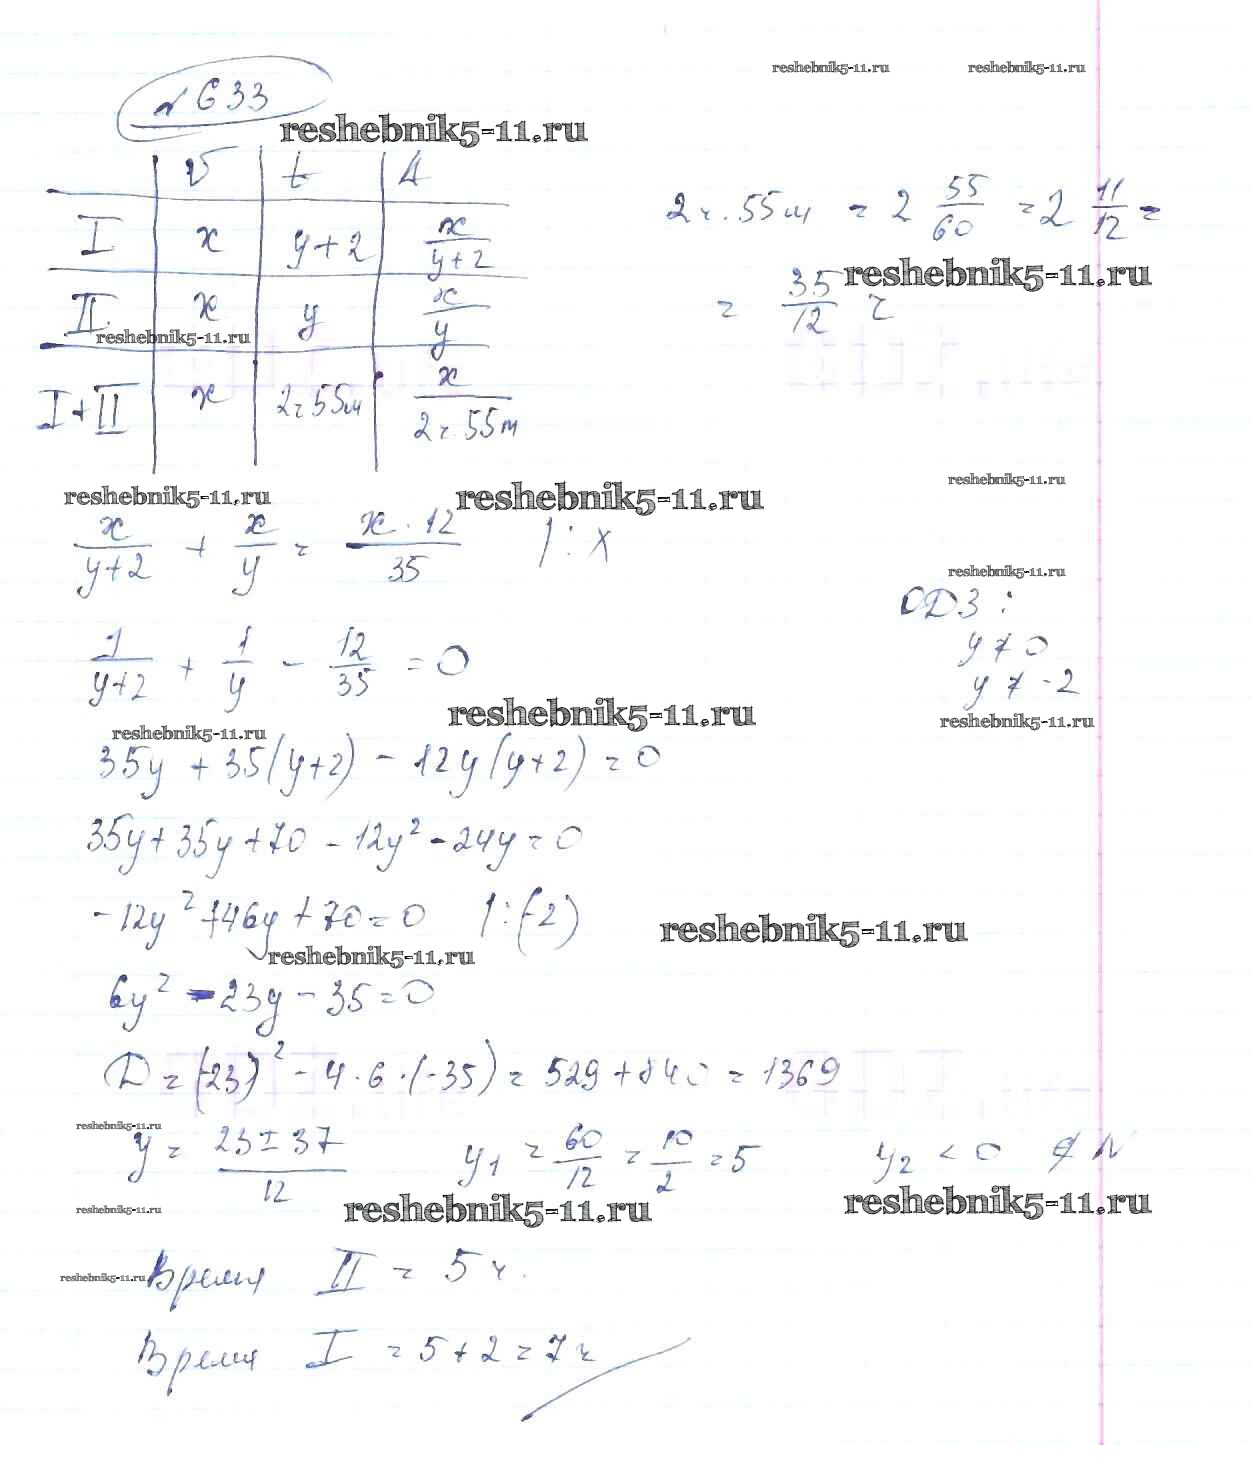 reshebnik5-11.ru reshebnik5-11.ru
№ 633
reshebnik5-11.ru
V t A
I x y+2 x/(y+2)
2ч. 55м = 2 55/60 = 2 11/12 =
reshebnik5-11.ru
= 35/12 ч
II x y x/y
reshebnik5-11.ru
I+II x 2ч 55м x/(2ч. 55м)
reshebnik5-11.ru reshebnik5-11.ru reshebnik5-11.ru
x/(y+2) + x/y = x·12/35 |: x
reshebnik5-11.ru
ОДЗ:
y ≠ 0
y ≠ -2
1/(y+2) + 1/y - 12/35 = 0
reshebnik5-11.ru reshebnik5-11.ru
reshebnik5-11.ru
35y + 35(y+2) - 12y(y+2) = 0
35y + 35y + 70 - 12y² - 24y = 0
-12y² + 46y + 70 = 0 |:(-2)
reshebnik5-11.ru
reshebnik5-11.ru
6y² - 23y - 35 = 0
D = (-23)² - 4·6·(-35) = 529 + 840 = 1369
reshebnik5-11.ru
y = (23 ± 37)/12 y₁ = 60/12 = 10/2 = 5 y₂ < 0 ∉ N
reshebnik5-11.ru reshebnik5-11.ru reshebnik5-11.ru
reshebnik5-11.ru
Время II = 5 ч.
Время I = 5 + 2 = 7 ч